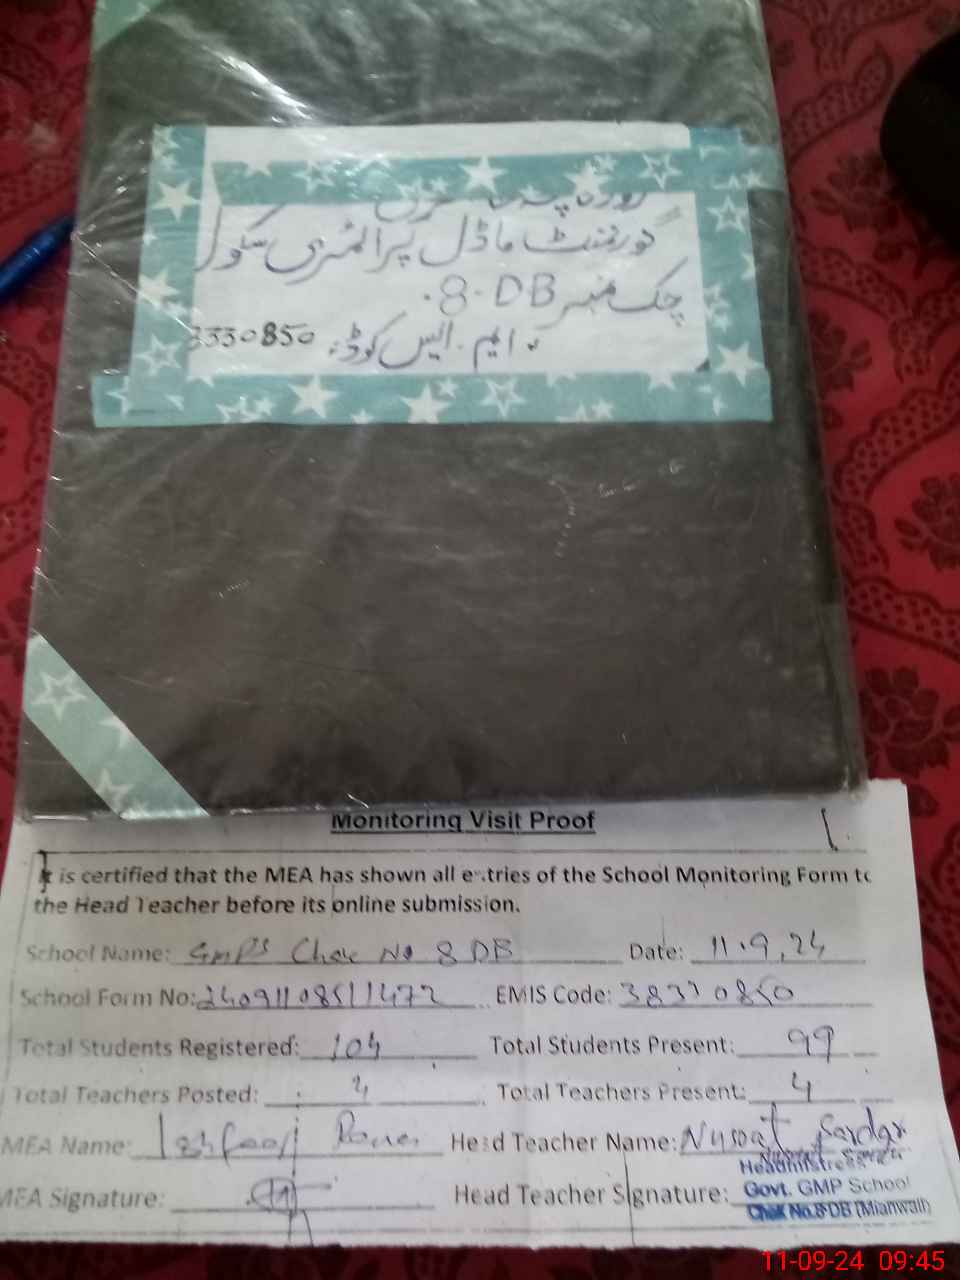 گورنمنٹ ماڈل پرائمری سکول
چک نمبر 8-DB.
ایم۔ایس کوڈ: 3330850
Monitoring Visit Proof
It is certified that the MEA has shown all entries of the School Monitoring Form to
the Head Teacher before its online submission.
School Name: GMPS Chak No 8 DB Date: 11.9.24
School Form No: 24091108511472 EMIS Code: 38330850
Total Students Registered: 104 Total Students Present: 99
Total Teachers Posted: 4 Total Teachers Present: 4
MEA Name: Head Teacher Name: Nusrat Sardar
MEA Signature: Head Teacher Signature:
Headmistress
Govt. GMP School
Chak No.8 DB (Mianwali)
11-09-24 09:45